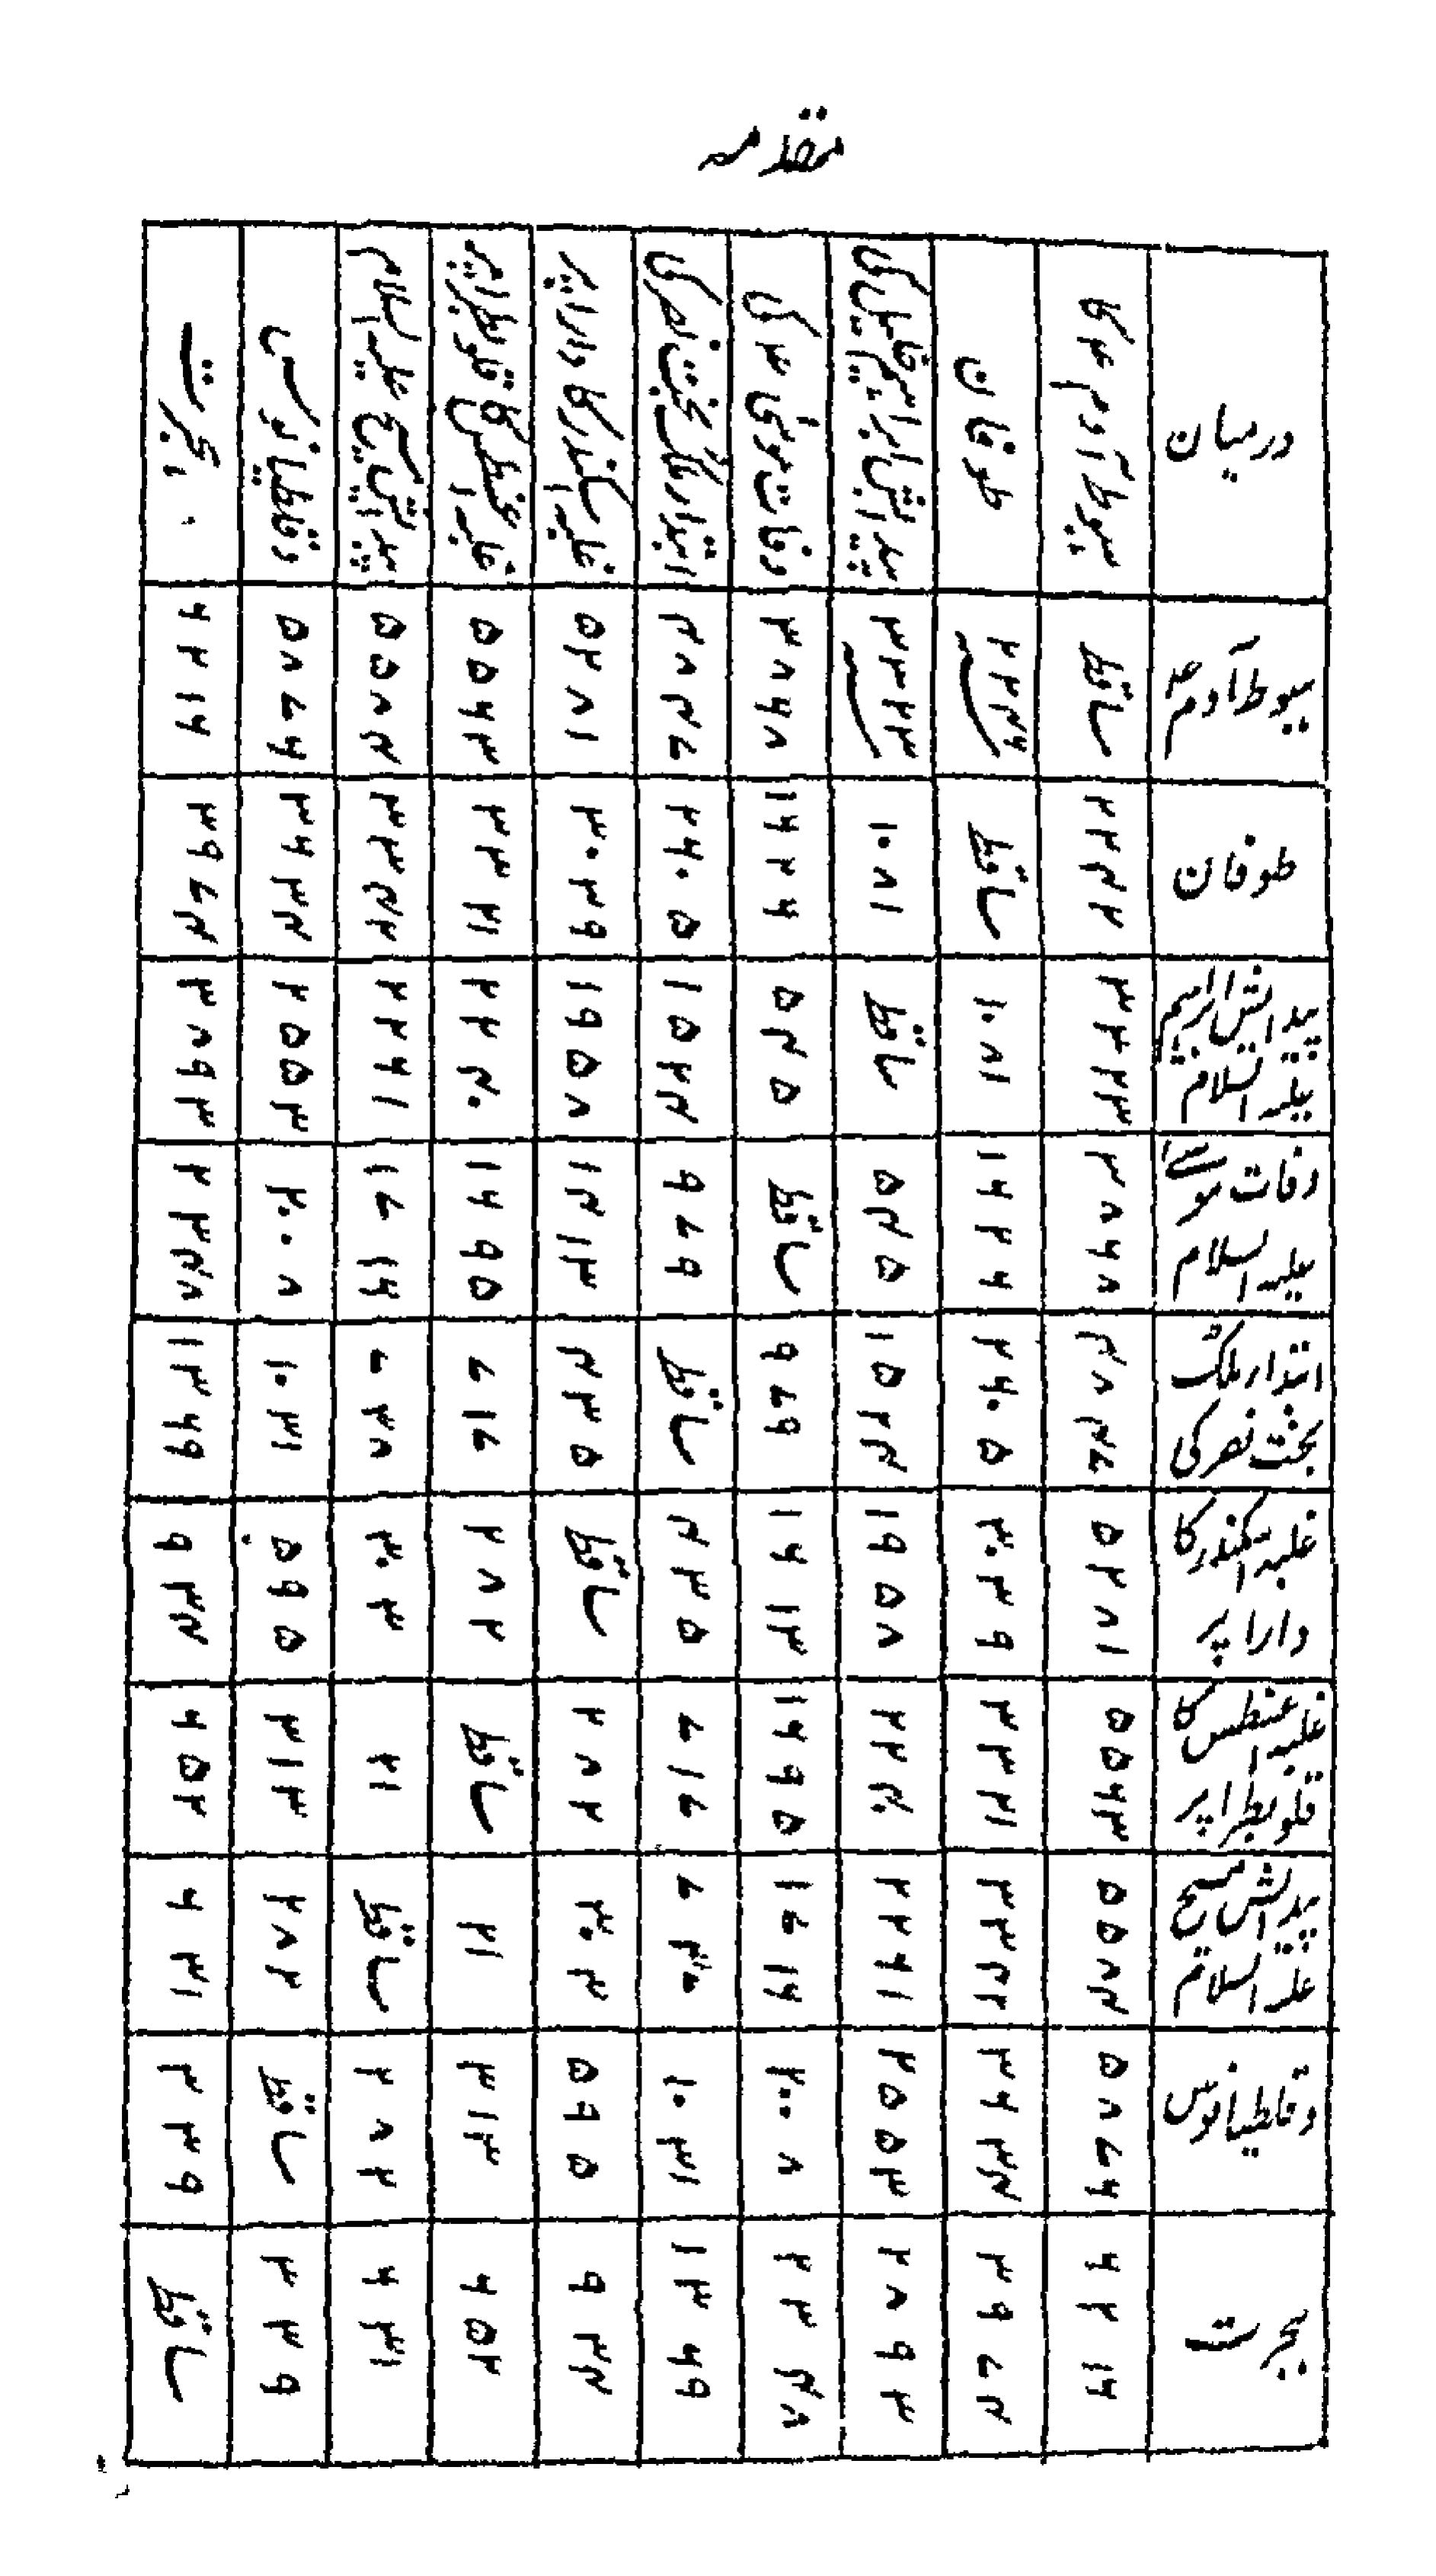 مقدامہ
درمیان | ہبوط آدم ع کا | طوفان | پیدائش ابراہیم خلیل کی | وفات موسیٰ ع کی | ابتدار ملک بخت نصر کی | غلبہ اسکندر کا دارا پر | غلبہ اغسطس کا قلوبطرا پر | پیدائش مسیح علیہ السلام | دقلطیانوس | ہجرت
ہبوط آدم ع | ساقط | ۲۲۴۲ | ۳۳۲۳ | ۳۸۶۸ | ۴۸۴۷ | ۵۲۸۱ | ۵۵۶۳ | ۵۵۸۴ | ۵۸۷۶ | ۶۲۱۶
طوفان | ۲۲۴۲ | ساقط | ۱۰۸۱ | ۱۶۲۶ | ۲۶۰۵ | ۳۰۳۹ | ۳۳۲۱ | ۳۳۴۲ | ۳۶۳۴ | ۳۹۷۴
پیدائش ابراہیم علیہ السلام | ۳۳۲۳ | ۱۰۸۱ | ساقط | ۵۴۵ | ۱۵۲۴ | ۱۹۵۸ | ۲۲۴۰ | ۲۲۶۱ | ۲۵۵۳ | ۲۸۹۳
وفات موسے علیہ السلام | ۳۸۶۸ | ۱۶۲۶ | ۵۴۵ | ساقط | ۹۷۹ | ۱۴۱۳ | ۱۶۹۵ | ۱۷۱۶ | ۲۰۰۸ | ۲۳۴۸
ابتدار ملک بخت نصر کی | ۴۸۴۷ | ۲۶۰۵ | ۱۵۲۴ | ۹۷۹ | ساقط | ۴۳۵ | ۷۱۷ | ۷۳۸ | ۱۰۳۱ | ۱۳۶۹
غلبہ اسکندر کا دارا پر | ۵۲۸۱ | ۳۰۳۹ | ۱۹۵۸ | ۱۶۱۳ | ۴۳۵ | ساقط | ۲۸۲ | ۳۰۳ | ۵۹۵ | ۹۳۴
غلبہ اغسطس کا قلوبطرا پر | ۵۵۶۳ | ۳۳۲۱ | ۲۲۴۰ | ۱۶۹۵ | ۷۱۷ | ۲۸۲ | ساقط | ۲۱ | ۳۱۳ | ۶۵۲
پیدائش مسیح علیہ السلام | ۵۵۸۴ | ۳۳۴۲ | ۲۲۶۱ | ۱۷۱۶ | ۷۳۸ | ۳۰۳ | ۲۱ | ساقط | ۲۸۲ | ۶۳۱
دقلطیانوس | ۵۸۷۶ | ۳۶۳۴ | ۲۵۵۳ | ۲۰۰۸ | ۱۰۳۱ | ۵۹۵ | ۳۱۳ | ۲۸۲ | ساقط | ۳۳۹
ہجرت | ۶۲۱۶ | ۳۹۷۴ | ۲۸۹۳ | ۲۳۴۸ | ۱۳۶۹ | ۹۳۴ | ۶۵۲ | ۶۳۱ | ۳۳۹ | ساقط